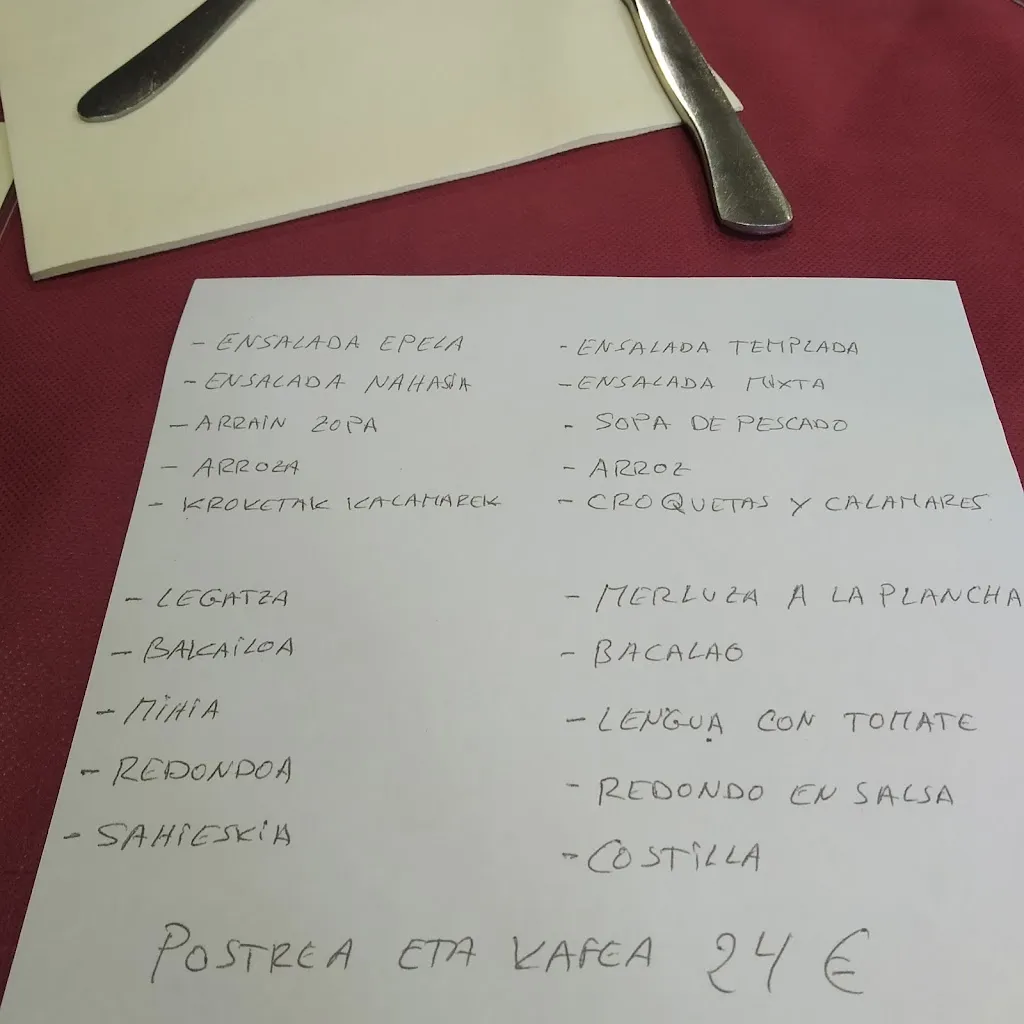 - ENSALADA EPELA
- ENSALADA NAHASIA
- ARRAIN ZOPA
- ARROZA
- KROKETAK KALAMAREK
- LEGATZA
- BAKAILOA
- MIHIA
- REDONDOA
- SAHIESKIA
- ENSALADA TEMPLADA
- ENSALADA MIXTA
- SOPA DE PESCADO
- ARROZ
- CROQUETAS Y CALAMARES
- MERLUZA A LA PLANCHA
- BACALAO
- LENGUA CON TOMATE
- REDONDO EN SALSA
- COSTILLA
POSTREA ETA KAFEA 24 €